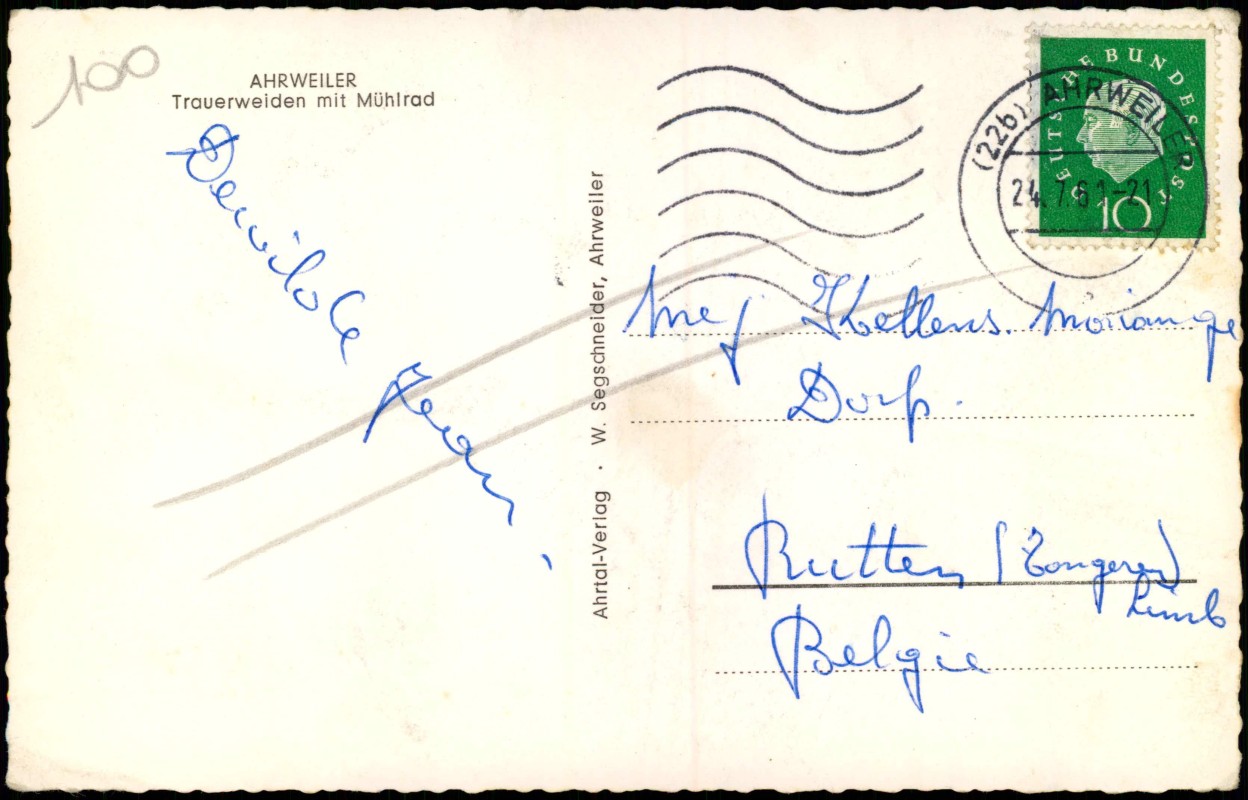 100
AHRWEILER
Trauerweiden mit Mühlrad
Ahrtal-Verlag · W. Segschneider, Ahrweiler
DEUTSCHE BUNDESPOST
10
(22b) AHRWEILER
24.7.61-21
Mej Kellens. Mariange
Dorp.
Rutten (Tongeren)
Limb
Belgie